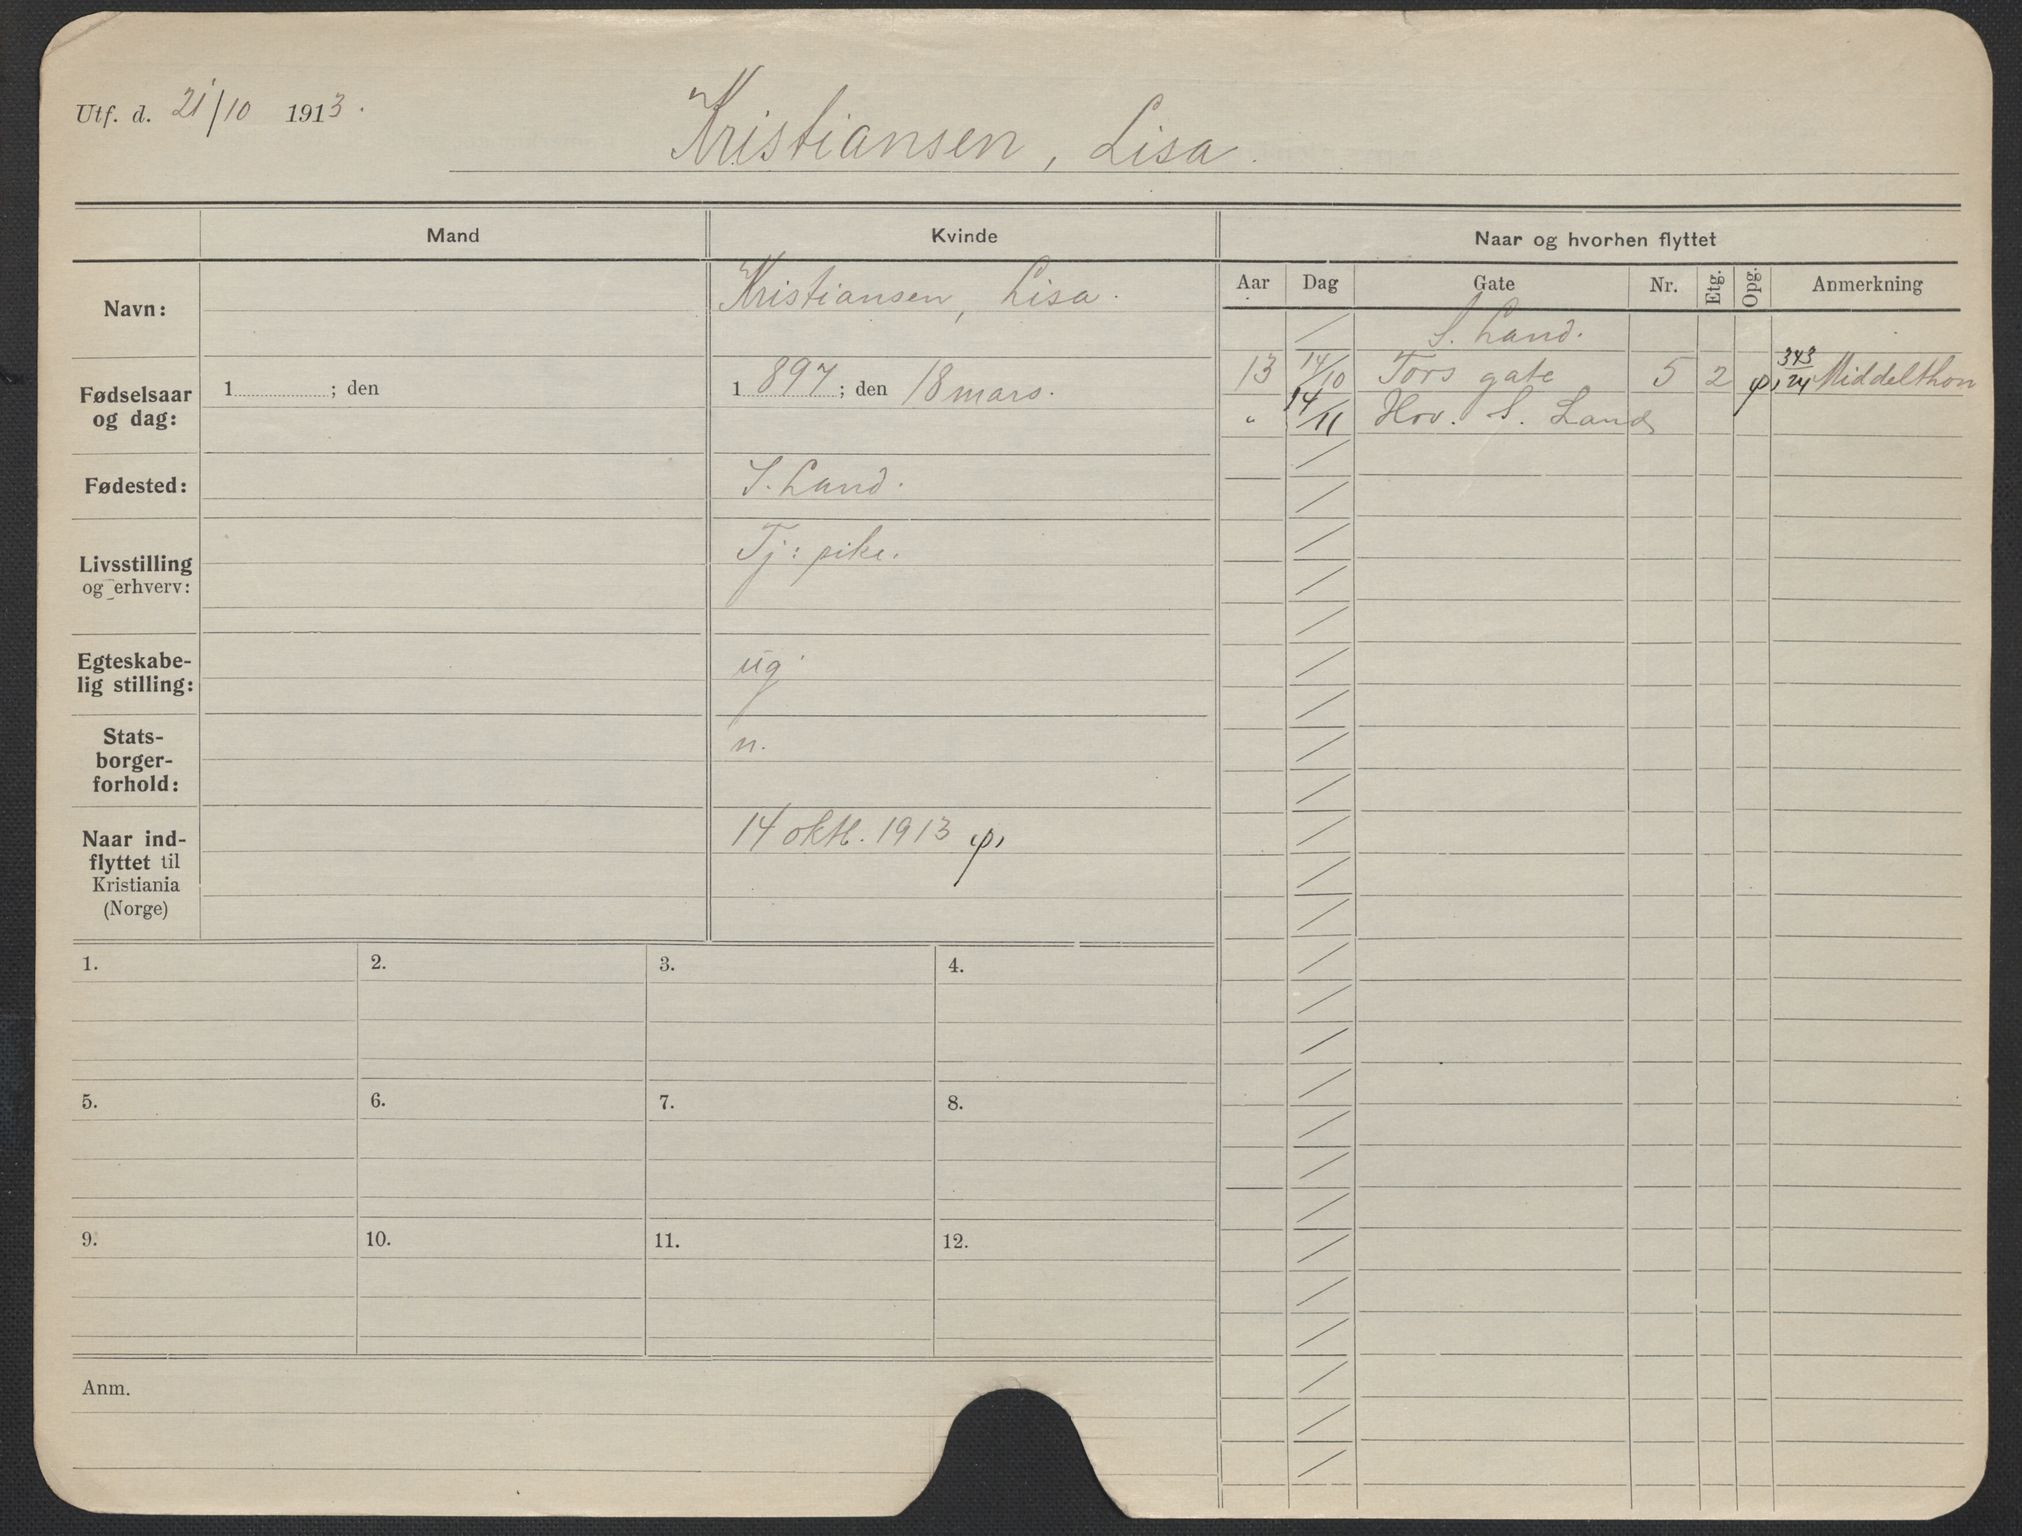 Utf. d. 21/10 1913.
Kristiansen, Lisa.
Mand
Kvinde
Naar og hvorhen flyttet
Aar Dag Gate Nr. Etg. Opg. Anmerkning
S. Land.
13 14/10 Tors gate 5 2 343/24 Middelthon
" 14/11 Hov. S. Land
Navn:
Kristiansen, Lisa.
Fødselsaar
og dag:
1 ; den
1 897 ; den 18 mars.
Fødested:
S. Land.
Livsstilling
og erhverv:
Tj: pike.
Egteskabe-
lig stilling:
ug
Stats-
borger-
forhold:
n.
Naar ind-
flyttet til
Kristiania
(Norge)
14 okt. 1913
1. 2. 3. 4.
5. 6. 7. 8.
9. 10. 11. 12.
Anm.